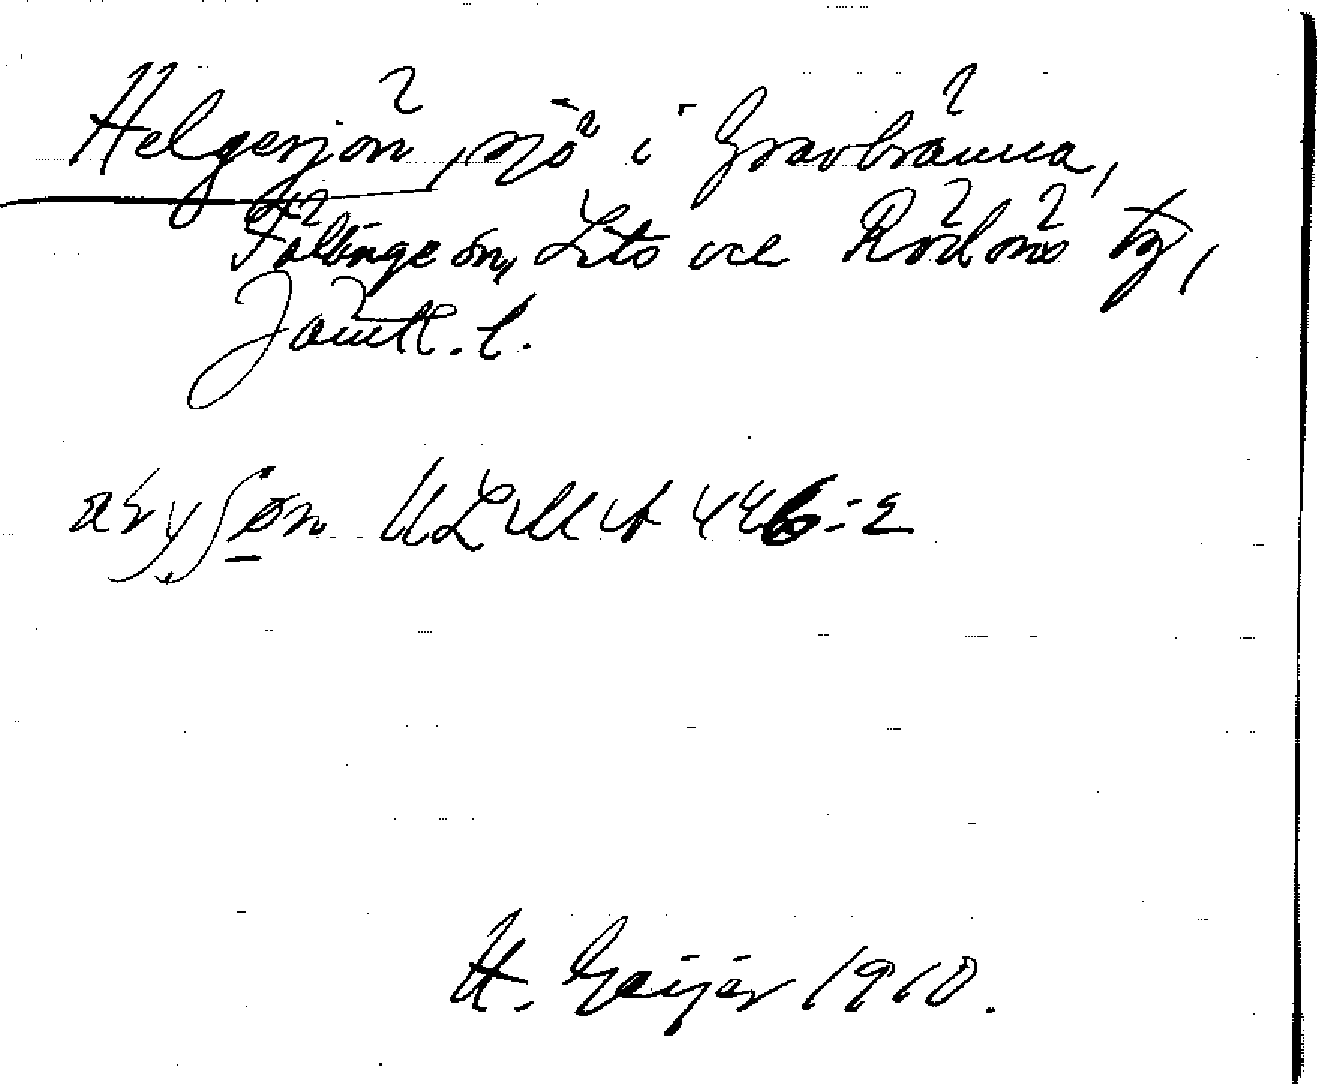 Helgesjön, sjö i Gravbränna,
Föllinge sn, Lits och Rödöns tg,
Jämtl. l.
ULMA 446:2
H. Geijer 1910.